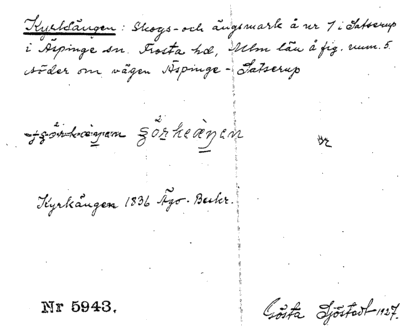 Kyrkängen: Skogs- och ängsmark å nr 1 i Satserup
i Äspinge sn. Frosta hd, Mlm län å fig. num. 5.
söder om vägen Äspinge - Satserup
Kyrkängen 1836 Ägo-Beskr.
Nr 5943.
Gösta Sjöstedt 1927.